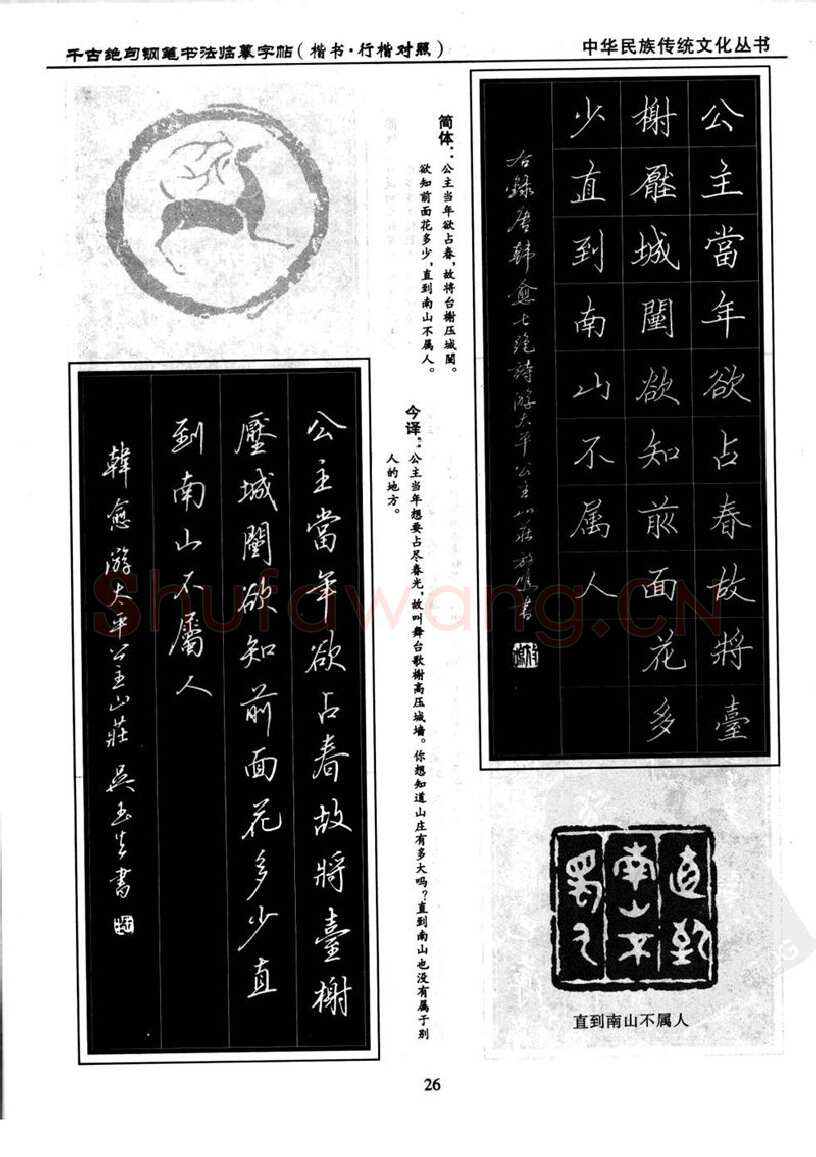 千古绝句钢笔书法临摹字帖(楷书·行楷对照)
中华民族传统文化丛书
公主當年欲占春故將臺
榭壓城闉欲知前面花多
少直到南山不属人
右録唐韩愈七绝詩游太平公主山莊
書
简体：公主当年欲占春，故将台榭压城闉。
欲知前面花多少，直到南山不属人。
今译：公主当年想要占尽春光，故叫舞台歌榭高压城墙。你想知道山庄有多大吗？直到南山也没有属于别
人的地方。
公主當年欲占春故將臺榭
壓城闉欲知前面花多少直
到南山不屬人
韓愈游太平公主山莊 吴玉生書
直到
南山不
属人
直到南山不属人
26
Shufawang.CN